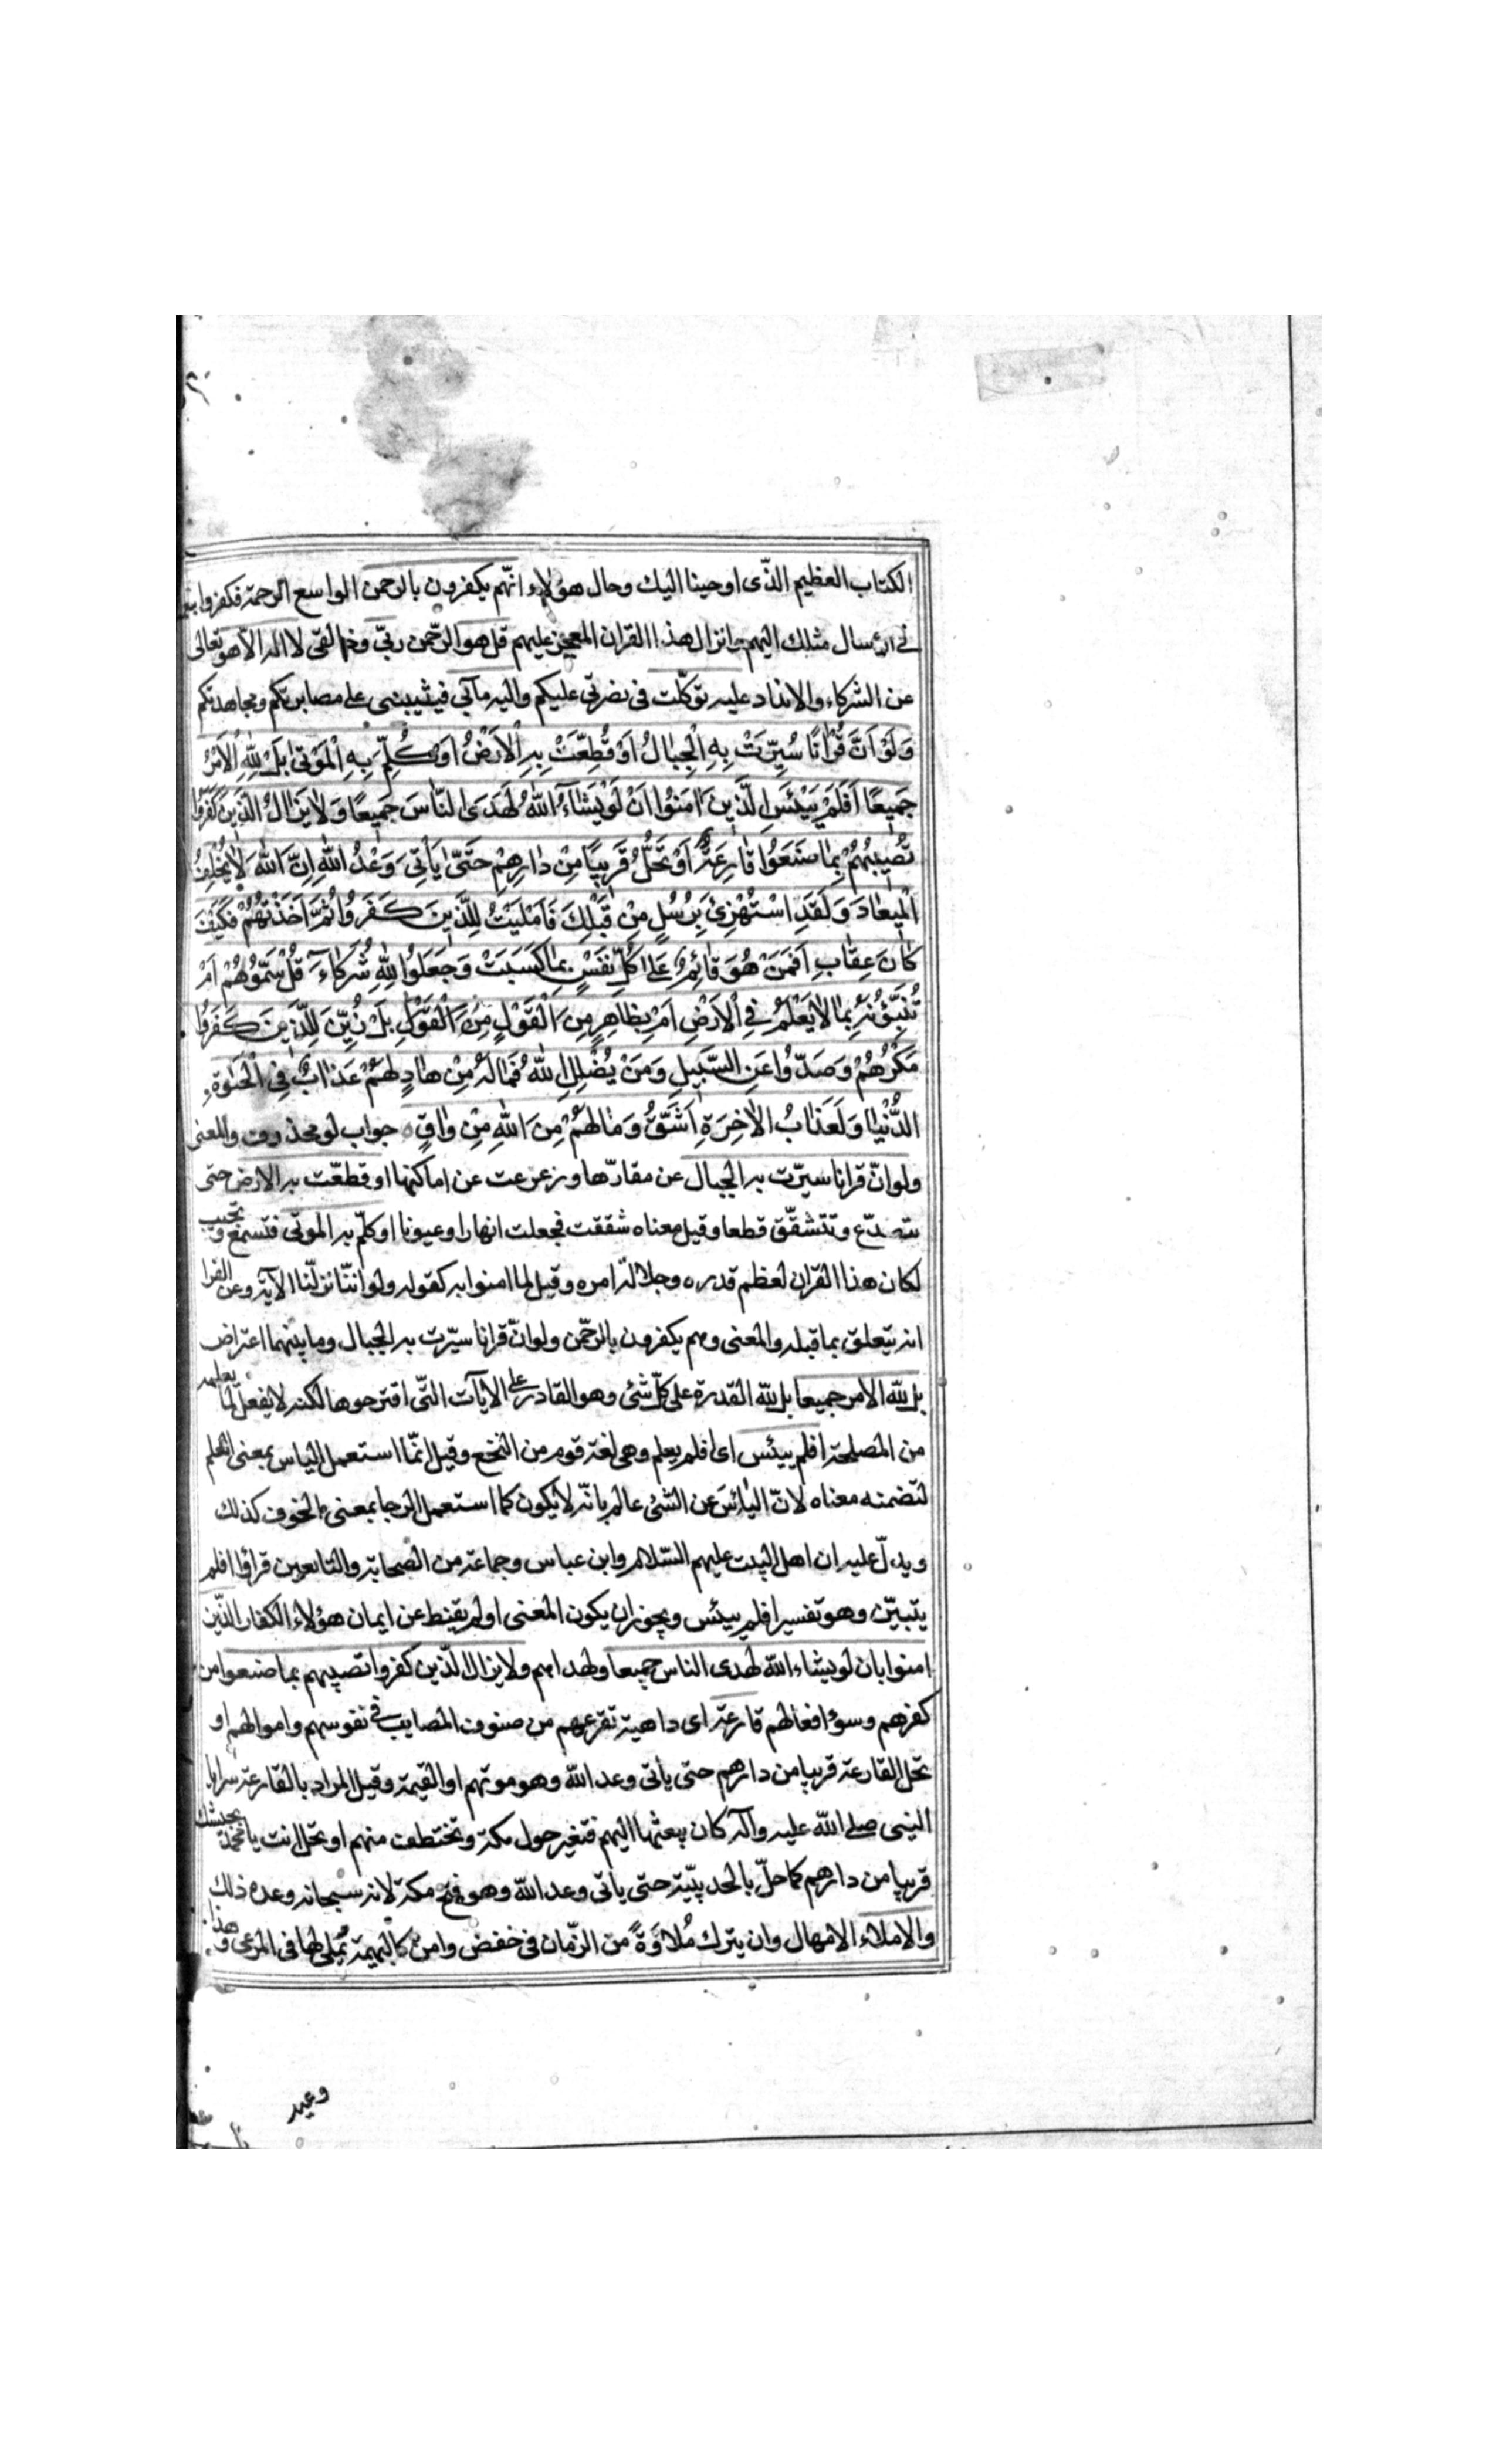 الكتاب العظيم الذّى اوحينا اليك وحال هؤلاء انّهم يكفرون بالرحمن الواسع الرحمة فكفروا
فى ارسال مثلك اليهم وانزال هذا القران المعجز عليهم قل هو الرّحمن ربّى وخالقى لا اله الّا هو تعالى
عن الشركاء والانداد عليه توكّلت فى نصرتى عليكم واليه مآبى فيثيبنى على مصابرتكم ومجاهدتكم
وَلَوْ اَنَّ قُرْانًا سُيِّرَتْ بِهِ الْجِبٰالُ اَوْ قُطِّعَتْ بِهِ الْاَرْضُ اَوْ كُلِّمَ بِهِ الْمَوْتٰى بَلْ لِلّٰهِ الْاَمْرُ
جَمِيعًا اَفَلَمْ يَيْئَسِ الَّذِينَ اٰمَنُوا اَنْ لَوْ يَشٰاءُ اللّٰهُ لَهَدَى النّٰاسَ جَمِيعًا وَلٰا يَزٰالُ الَّذِينَ كَفَرُوا
تُصِيبُهُمْ بِمٰا صَنَعُوا قٰارِعَةٌ اَوْ تَحُلُّ قَرِيبًا مِنْ دٰارِهِمْ حَتّٰى يَأْتِيَ وَعْدُ اللّٰهِ اِنَّ اللّٰهَ لٰا يُخْلِفُ
الْمِيعٰادَ وَلَقَدِ اسْتُهْزِئَ بِرُسُلٍ مِنْ قَبْلِكَ فَاَمْلَيْتُ لِلَّذِينَ كَفَرُوا ثُمَّ اَخَذْتُهُمْ فَكَيْفَ
كٰانَ عِقٰابِ اَفَمَنْ هُوَ قٰائِمٌ عَلٰى كُلِّ نَفْسٍ بِمٰا كَسَبَتْ وَجَعَلُوا لِلّٰهِ شُرَكٰاءَ قُلْ سَمُّوهُمْ اَمْ
تُنَبِّؤُنَهُ بِمٰا لٰا يَعْلَمُ فِي الْاَرْضِ اَمْ بِظٰاهِرٍ مِنَ الْقَوْلِ مِنَ الْقَوْلِ بَلْ زُيِّنَ لِلَّذِينَ كَفَرُوا
مَكْرُهُمْ وَصَدُّوا عَنِ السَّبِيلِ وَمَنْ يُضْلِلِ اللّٰهُ فَمٰا لَهُ مِنْ هٰادٍ لَهُمْ عَذٰابٌ فِي الْحَيٰوةِ
الدُّنْيٰا وَلَعَذٰابُ الْاٰخِرَةِ اَشَقُّ وَمٰا لَهُمْ مِنَ اللّٰهِ مِنْ وٰاقٍ جواب لو محذوف والمعنى
ولو انّ قرانا سيّرت به الجبال عن مقارّها وزعزعت عن اماكنها او قطّعت به الارض حتى
تتصدّع وتتشقّق قطعا وقيل معناه شققت فجعلت انهارا وعيونا او كلّم به الموتى فتسمع وتجيب
لكان هذا القران لعظم قدره وجلالة امره وقيل لما امنوا به كقوله ولو انّنا نزلّنا الآية وعن الفرا
انه يتعلق بما قبله والمعنى وهم يكفرون بالرحّمن ولو انّ قرانا سيّرت به الجبال وما بينهما اعتراض
بل لله الامر جميعا بل لله القدرة على كلّ شئ وهو القادر على الايآت التّى اقترحوها لكنه لا يفعل لما يعلمه
من المصلحة افلم ييئس اى افلم يعلم وهى لغة قوم من النخع وقيل انّما استعمل الياس بمعنى العلم
لتضمنه معناه لانّ اليائس عن الشئ عالم بانّه لا يكون كما استعمل الرجا بمعنى الخوف كذلك
ويدلّ عليه ان اهل البيت عليهم السّلام وابن عباس وجماعة من الصحابة والتابعين قرأوا افلم
يتبيّن وهو تفسير افلم ييئس ويجوز ان يكون المعنى اولم يقنط عن ايمان هؤلاء الكفار الذّين
امنوا بان لو يشاء الله لهدى الناس جميعا ولهداهم ولا يزال الذّين كفروا تصيبهم بما صنعوا من
كفرهم وسوء افعالهم قارعة اى داهية تقرعهم من صنوف المصايب فى نفوسهم واموالهم او
تحل القارعة قريبا من دارهم حتى ياتى وعد الله وهو موتهم او القيمة وقيل المراد بالقارعة سرايا
النبى صلى الله عليه وآله كان يبعثها اليهم فتغير حول مكة وتختطف منهم او تحل انت يا محمّد بجيشك
قريبا من دارهم كما حلّ بالحديبيّة حتى ياتى وعد الله وهو فتح مكة لانه سبحانه وعده ذلك
والاملاء الامهال وان يترك مُلاوَةً من الزّمان فى خفض وامن كالبهيمة يُملى لها فى المرعى وهذا
وعيد